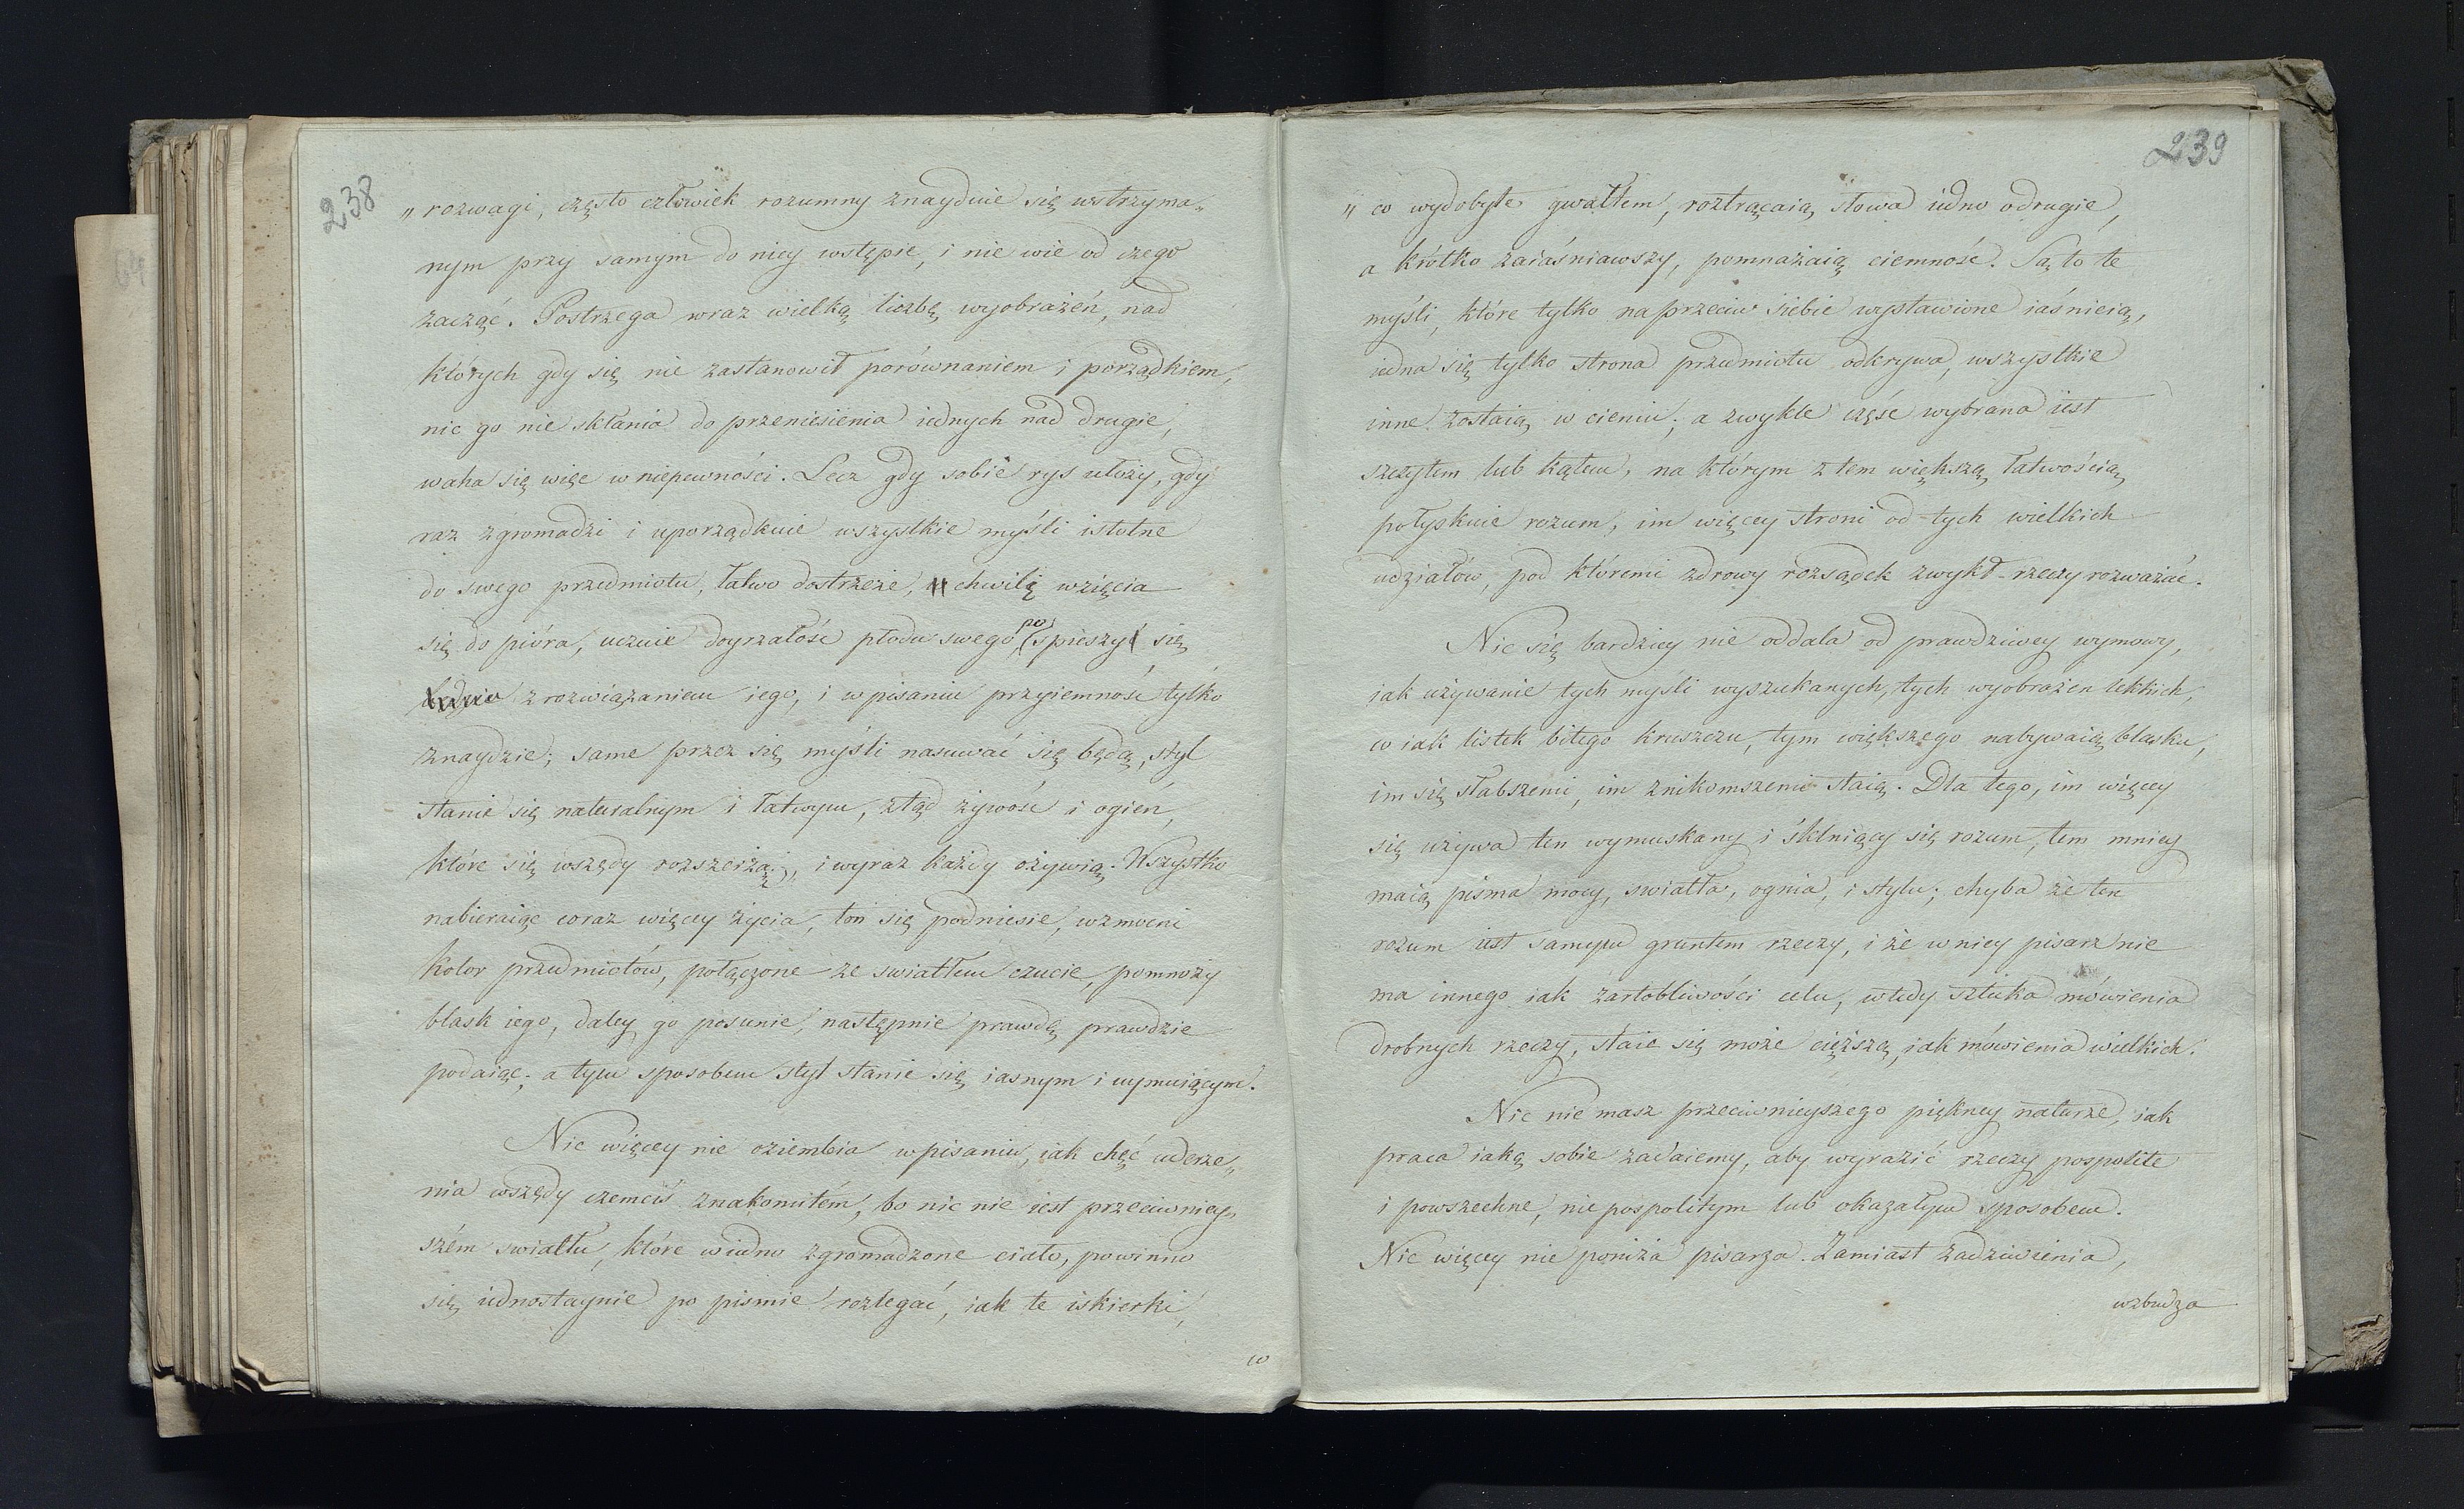 238
„ rozwagi, często człowiek rozumny znayduie się wstrzyma„
nym przy samym do niey wstępie, i nie wie od czego
zacząć. Postrzega wraz wielką liczbę wyobrażeń, nad
których gdy się nie zastanowił porównaniem i porządkiem,
nic go nie skłania do przeniesienia iednych nad drugie,
waha się więc w niepewności. Lecz gdy sobie rys ułoży, gdy
raz zgromadzi i uporządkuie wszystkie myśli istotne
do swego przedmiotu, łatwo dostrzeże, chwilę wzięcia
się do pióra, uczuie doyrzałość płodu swego, pospieszy się
z rozwiązaniem iego, i w pisaniu przyiemność tylko
znaydzie; same przez się myśli nasuwać się będą, styl
stanie się naturalnym i łatwym, ztąd żywość i ogień,
które się wszędy rozszerzą, i wyraz każdy ożywią. Wszystko
nabieraiąc coraz więcey życia, ton się podniesie, wzmocni
kolor przedmiotów, połączone ze swiatłem czucie, pomnoży
blask iego, daley go posunie, następnie prawdę prawdzie
podaiąc; a tym sposobem styl stanie się iasnym i uymuiącym.
Nic więcey nie oziembia w pisaniu, iak chęć uderze„
nia wszędy czemciś znakomitém, bo nic nie iest przeciwniey„
szém swiatłu, które w iedno zgromadzone ciało, powinno
się iednostaynie po pismie rozlegać, iak te iskierki,
co
239
„ co wydobyte gwałtem, roztrącaią słowa iedno o drugie,
a krótko zaiaśniawszy, pomnażaią ciemność. Są to te
myśli, które tylko naprzeciw siebie wystawione iaśnieią,
iedna się tylko strona przedmiotu odkrywa, wszystkie
inne zostaią w cieniu; a zwykle część wybrana iest
szczytem lub kątem, na którym z tem większą łatwością
połyskuie rozum, im więcey stroni od tych wielkich
udziałów, pod któremi zdrowy rozsądek zwykł rzeczy rozważać.
Nic się bardziey nie oddala od prawdziwey wymowy,
iak używanie tych myśli wyszukanych, tych wyobrażen lekkich,
co iak listek bitego kruszczu, tym większego nabywaią blasku,
im się słabszemi, im znikomszemi staią. Dla tego, im więcey
się używa ten wymuskany i śklniący się rozum, tem mniey
maią pisma mocy, swiatła, ognia, i stylu; chyba że ten
rozum iest samym gruntem rzeczy, i że w niey pisarz nie
ma innego iak żartobliwości celu, wtedy sztuka mówienia
drobnych rzeczy, staie się może cięższą, iak mówienia wielkich.
Nic nie masz przeciwnieyszego piękney naturze, iak
praca iaką sobie zadaiemy, aby wyrazić rzeczy pospolite
i powszechne, niepospolitym lub okazałym sposobem.
Nic więcey nie poniża pisarza. Zamiast zadziwienia,
wzbudza